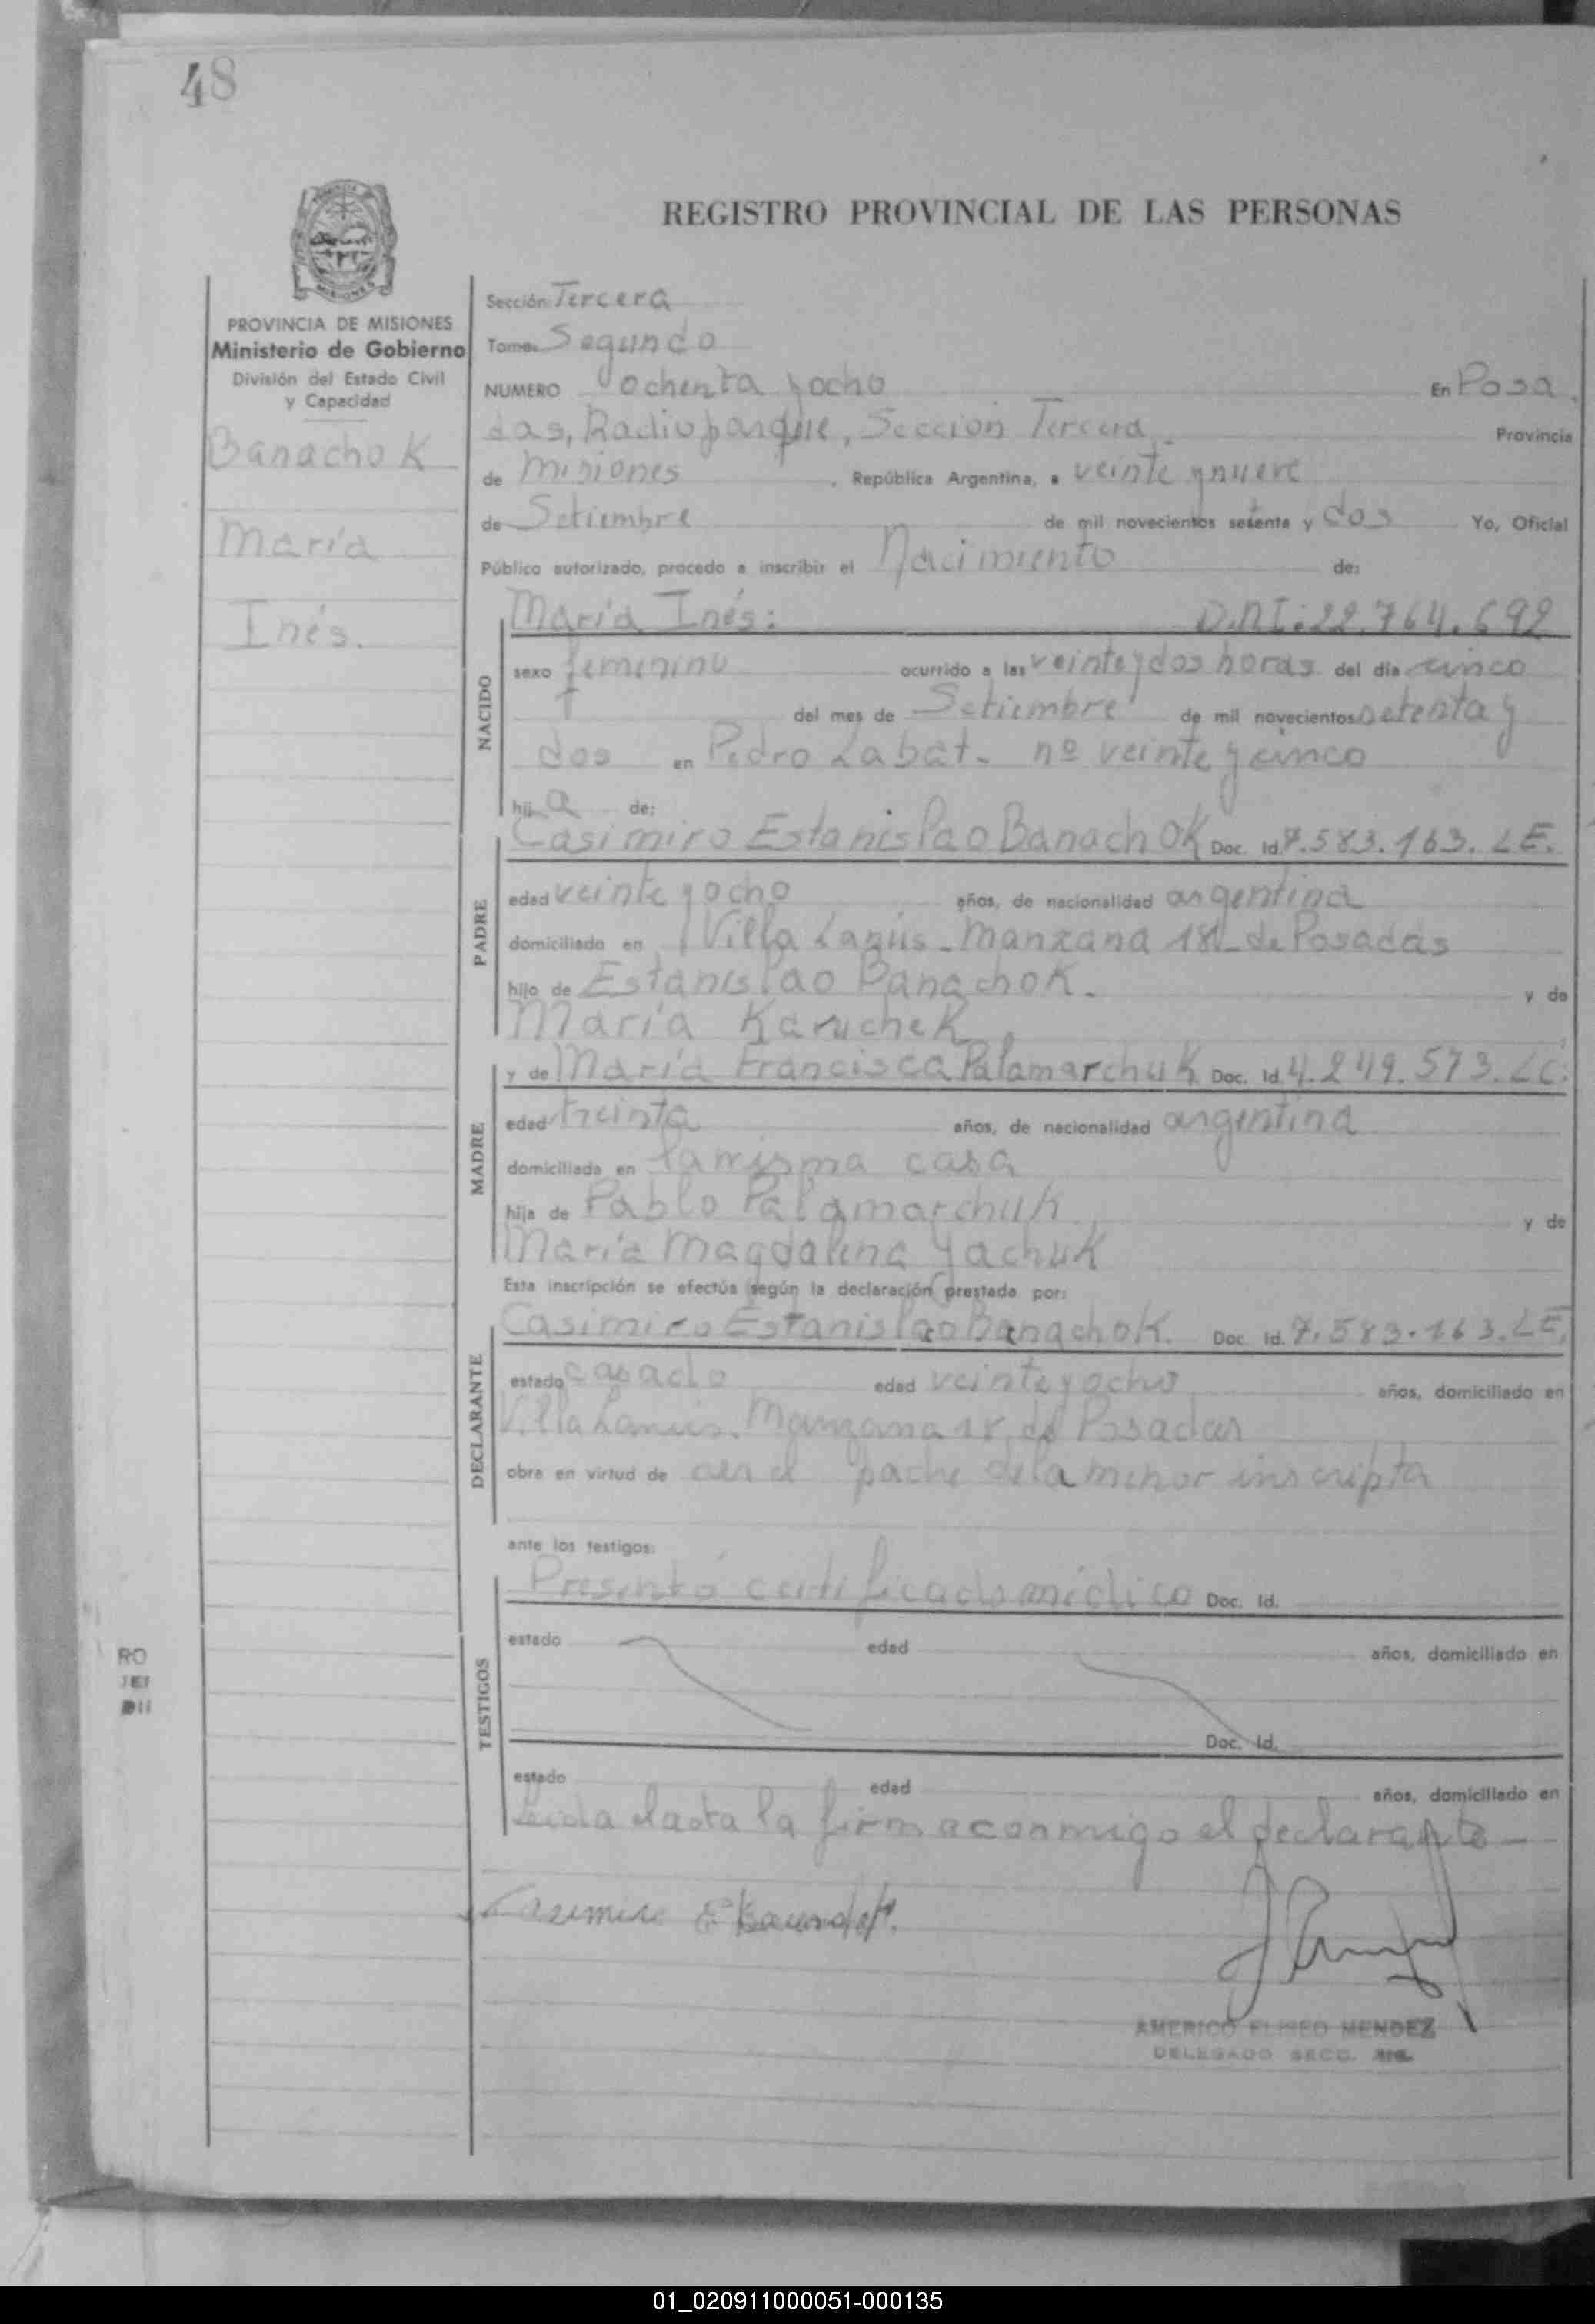 48
REGISTRO PROVINCIAL DE LAS PERSONAS
PROVINCIA DE MISIONES
Ministerio de Gobierno
División del Estado Civil
y Capacidad
Banachok
María
Inés.
Sección Tercera
Tomo Segundo
NUMERO ochenta y ocho En Posa
das, Radioparque, Sección Tercera. Provincia
de Misiones, República Argentina, a veinte y nueve
de Setiembre de mil novecientos setenta y dos Yo, Oficial
Público autorizado, procedo a inscribir el Nacimiento de:
NACIDO
María Inés: D.N.I.: 22.764.692
sexo femenino ocurrido a las veinte y dos horas del día cinco
del mes de Setiembre de mil novecientos setenta y
dos en Pedro Labat. nº veinte y cinco
hij a de:
PADRE
Casimiro Estanislao Banachok Doc. Id. 7.583.163. L.E.
edad veinte y ocho años, de nacionalidad argentina
domiciliado en Villa Lanús - Manzana 18 - de Posadas
hijo de Estanislao Banachok. y de
María
MADRE
y de María Francisca Palamarchuk Doc. Id. 4.249.573. L.C.
edad treinta años, de nacionalidad argentina
domiciliada en la misma casa
hija de Pablo Palamarchuk y de
María Magdalena Yachuk
Esta inscripción se efectúa según la declaración prestada por:
DECLARANTE
Casimiro Estanislao Banachok. Doc. Id. 7.583.163. L.E.
estado casado edad veinte y ocho años, domiciliado en
Villa Lanús. Manzana 18, de Posadas
obra en virtud de ser el padre de la menor inscripta
ante los testigos:
TESTIGOS
Presentó certificado médico Doc. Id.
estado edad años, domiciliado en
Doc. Id.
estado edad años, domiciliado en
Leída el acta la firma conmigo el declarante
Casimiro E
AMERICO ELISEO MENDEZ
DELEGADO SECC.
RO
01_020911000051-000135